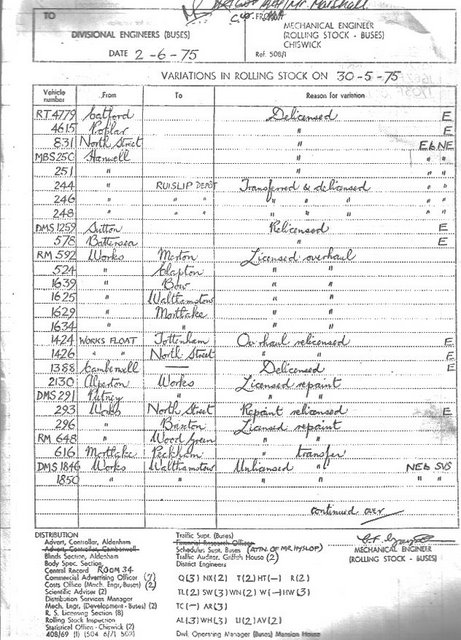 TO
Mr. Marshall
DIVISIONAL ENGINEERS (BUSES)
DATE 2-6-75
MECHANICAL ENGINEER
(ROLLING STOCK - BUSES)
CHISWICK
Ref. 508/1
VARIATIONS IN ROLLING STOCK ON 30-5-75
Vehicle number From To Reason for variation
RT 4779 Catford Delicensed E
4615 Poplar " E
831 North Street " E6 NE
MBS 250 Hanwell " " "
251 " " " "
244 " RUISLIP DEPOT Transferred & delicensed " "
246 " " " " " " " "
248 " " " " " " " "
DMS 1259 Sutton Relicensed E
578 Battersea " E
RM 592 Works Merton Licensed overhaul
524 " Clapton " "
1639 " Bow " "
1625 " Walthamstow " "
1629 " Mortlake " "
1634 " " " "
1424 WORKS FLOAT Tottenham Overhaul relicensed E
1426 " " North Street " " E
1388 Camberwell — Delicensed E
2130 Alperton Works Licensed repaint
DMS 291 Putney " " "
293 Works North Street Repaint relicensed E
296 " Brixton Licensed repaint
RM 648 " Wood Green " "
616 Mortlake Peckham " transfer
DMS 1846 Works Walthamstow Unlicensed " NEb SVS
1850 " " " "
continued over
DISTRIBUTION
Advert. Controller, Aldenham
Advert. Controller, Camberwell
Blinds Section, Aldenham
Body Spec. Section
Central Record ROOM 34
Commercial Advertising Officer
Costs Office (Mech. Engr, Buses) (2)
Scientific Adviser (2)
Distribution Services Manager
Mech. Engr. (Development - Buses) (2)
R. S. Licensing Section (8)
Rolling Stock Inspection
Statistical Office - Chiswick (2)
408/69 (1) (504 6/1 507)
Traffic Supt. (Buses)
Financial Research Officer
Schedules Supt. Buses (ATTN. OF MR HYSLOP)
Traffic Auditor, Griffith House (2)
District Engineers
Q(3) NX(2) T(2) HT(—) R(2)
TL(2) SW(3) WN(2) W(—) HW(3)
TC(—) AR(3)
AL(3) WH(3) U(2) AV(2)
Divl. Operating Manager (Buses) Mansion House
MECHANICAL ENGINEER
(ROLLING STOCK - BUSES)